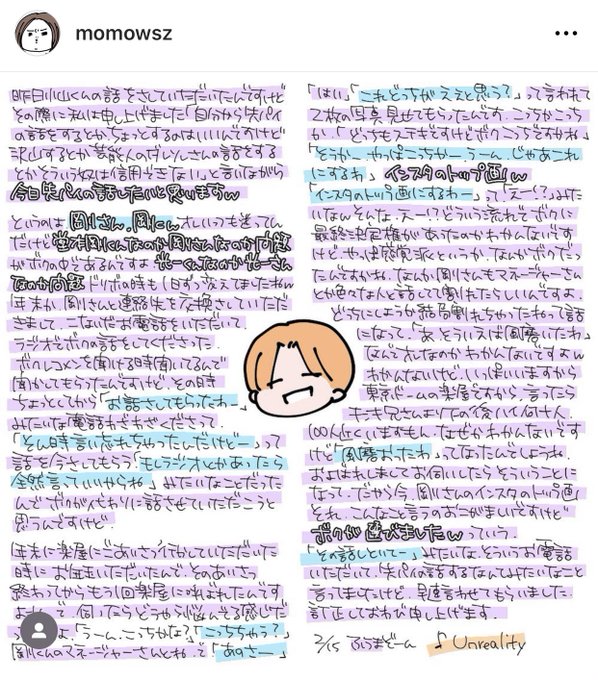 momowsz
昨日小山くんの話をさせていただいたんですけど
その際に私は申し上げました「自分から失パイ
の話をするとか、ちょっとするのはいいんですけど
沢山するとか芸能人のダレソレさんの話をする
とかそういう奴は信用できない」と言いながら
今日失パイの話したいと思いますw
というのは剛さん。剛くん。オレいつも迷ってん
だけど堂本剛くんなのか剛さんなのか問題
がボクの中であるんですよ 光一くんなのか光一さん
なのか問題 ドリボの時も1日ずつ変えてましたねw
年末か、剛さんと連絡先を交換させていただ
きまして、こないだお電話をいただいて。
ラジオでボクの話をしてくださった。
ボクレコメンを聞ける時聞いてるんで
聞かせてもらったんですけど、その時
ちょっとしてから「お話させてもらったわー」
みたいな電話わざわざくださって。
「そん時言い忘れちゃったんだけどー」って
話を今さしてもらう「もしラジオとかあったら
全然言っていいからね」みたいなことだった
んでボクが代わりに話させていただこうと
思うんですけど
年末に楽屋にごあいさつ行かしていただいた
時に お年玉いただいたんで、そのあいさつ
終わってからもう1回楽屋に呼ばれたんです
よね。で、伺ったらどうやら悩んでる感じだ
「うーん、こっちかな?」「こっちちゃう?」
剛くんのマネージャーさんとね。で「あのさー」
「はい」「これどっちがええと思う?」って言われて
2枚の写真見せてもらったんです。こっちかこっち
か。「どっちもステキですけどボクこっちですかね」
「そうかー、やっぱこっちかー、うーん、じゃあこれ
にするわ」インスタのトップ画w
「インスタのトップ画にするわー」って「えー!?」みた
いなんそんな、えー!?どういう流れでボクに
最終決定権があったのかわかんないです
けど、やっぱ感覚派というか、なんかボクだっ
たんですかね。なんか剛さんもマネージャーさん
とか色々な人と話してて割れたらしいんですよ。
どっちにしようか結局割れちゃったわって話
になって、「あ、そういえば風磨いたわ」
なんでオレなのかわかんないですよw
わかんないけど、いっぱいいますから
東京ドームの楽屋ですから、言ったら
キンキ兄さんより下の後パイ何十人、
100人近くいますもん。なぜかわかんないです
けど「風磨おったわ」ってなったんでしょうね。
およばれしましてお伺いしたらそういうことに
なって。だから今、剛さんのインスタのトップ画
それ、こんなこと言うのおこがましいですけど
ボクが選びましたwっていう。
「その話しといてー」みたいな。そういうお電話
いただいて。失パイの話するなんてみたいなこと
言ってましたけど、早速言わせてもらいました。
訂正しておわび申し上げます。
2/15 ふうまどーん ♪Unreality